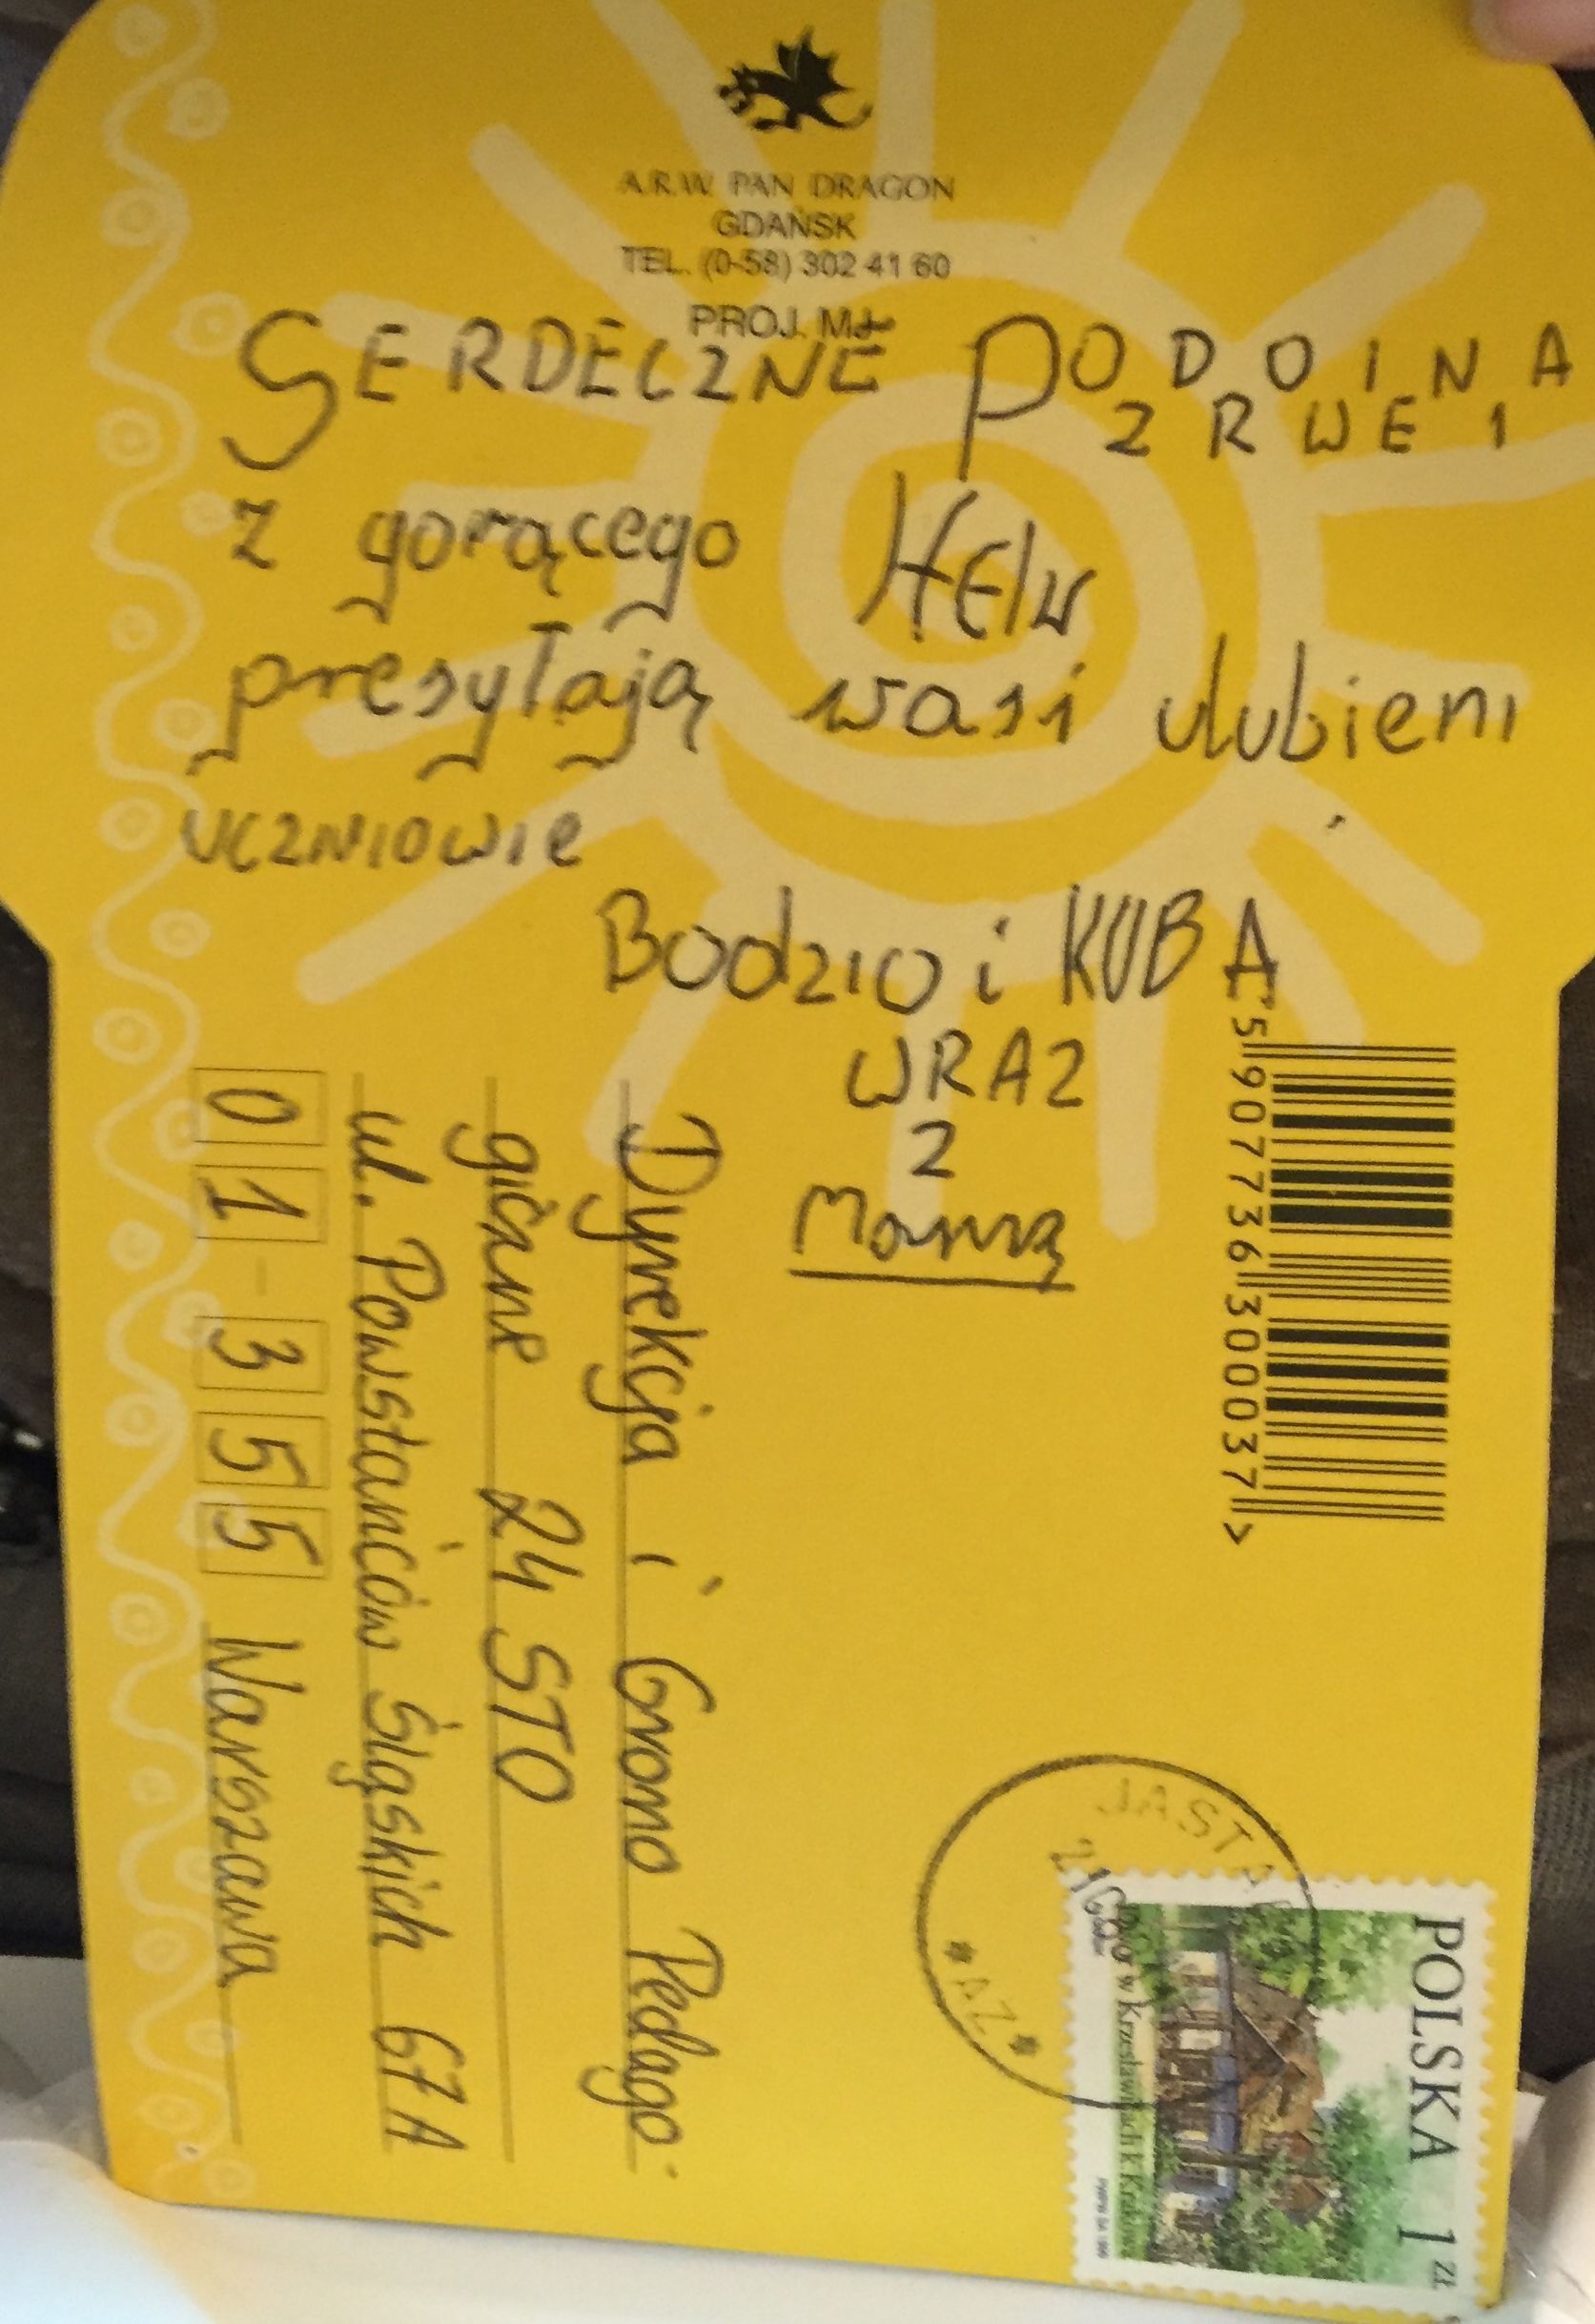 A.R.W. PAN DRAGON
GDAŃSK
TEL. (0-58) 302 41 60
PROJ. MJ
SERDECZNE POZDROWIENIA
z gorącego HElu
presyłają wasi ulubieni
UCZNIOWIE
Bodzio i KUBA
WRAZ
Z
Mamą
5 907736 300037 >
Dyrekcja i Grono Pedago-
giczne 24 STO
ul. Powstańców Śląskich 67A
01-355 Warszawa
POLSKA 1 ZŁ
Dwór w Krzesławicach k. Krakowa